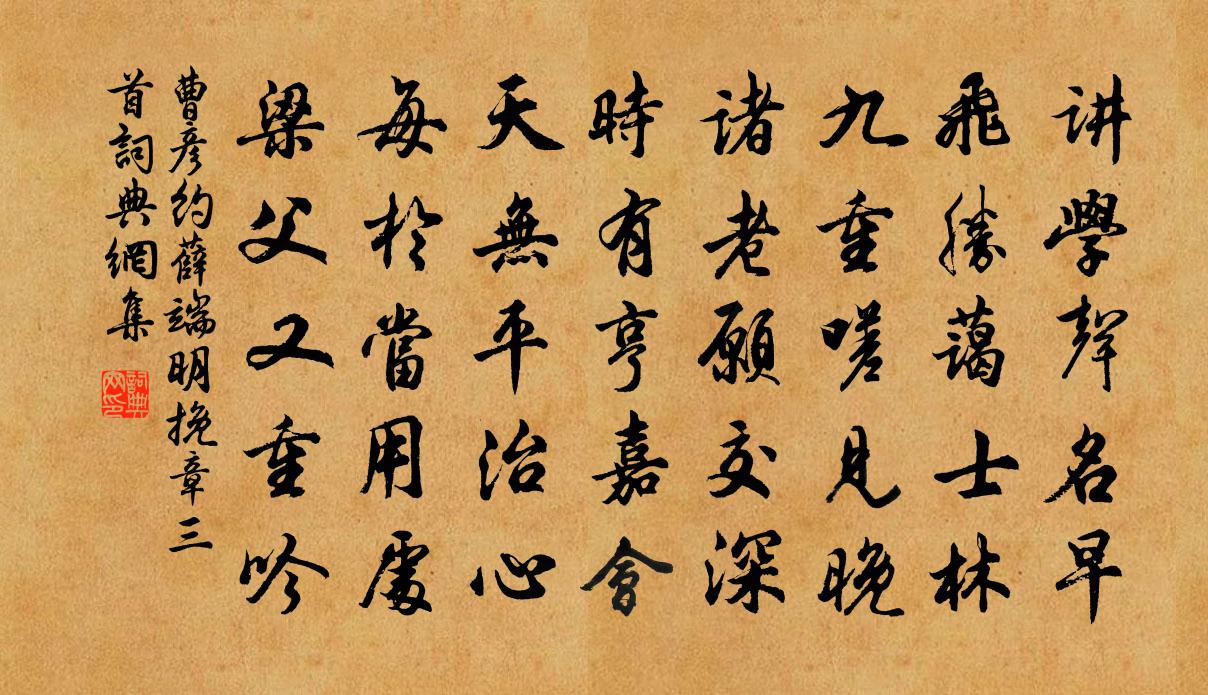 讲學聲名早
飛勝藹士林
九重嗟見晚
诸老願交深
時有亨嘉會
天無平治心
每於當用處
梁父又重吟
曹彦约薛端明挽章三
首詞典網集
詞典
网印